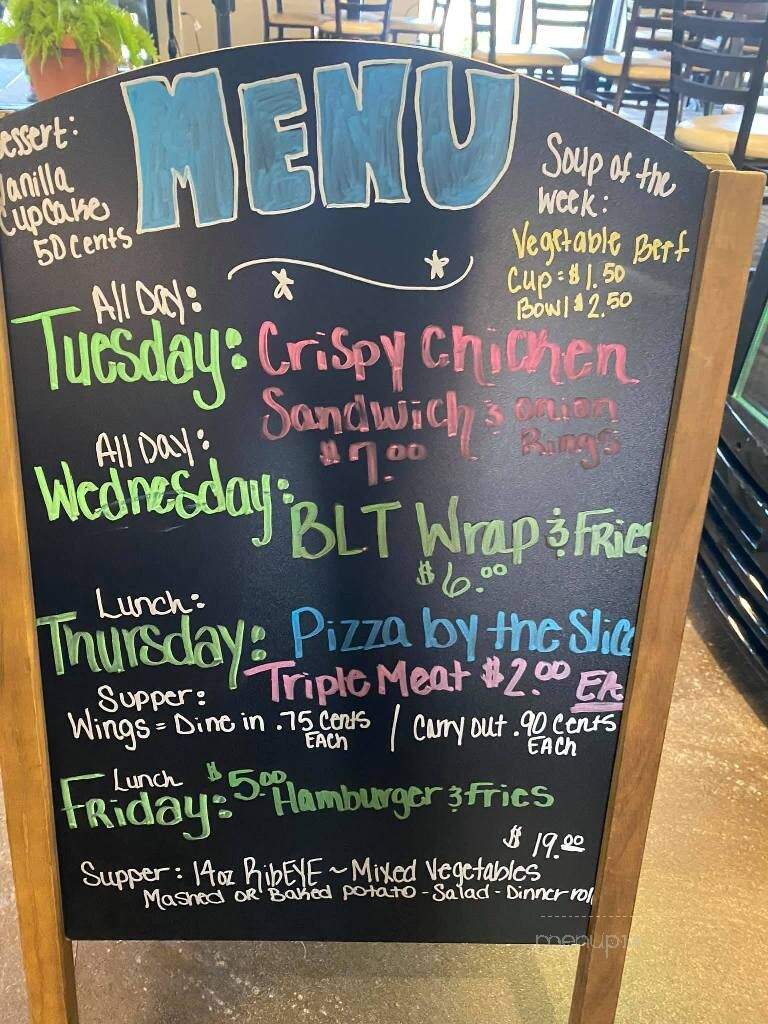 MENU
essert:
Vanilla
Cupcake
50 Cents
Soup of the
week:
Vegetable Beef
Cup = $1.50
Bowl $2.50
All Day:
Tuesday: Crispy Chicken
Sandwich & onion
Rings
$7.00
All Day:
Wednesday:
BLT Wrap & Fries
$6.00
Lunch:
Thursday: Pizza by the Slice
Triple Meat $2.00 EA
Supper:
Wings = Dine in .75 Cents / Carry out .90 Cents
EACH EACH
Lunch
Friday: $5.00 Hamburger & Fries
$19.00
Supper: 14oz RibEYE ~ Mixed Vegetables
Mashed OR Baked potato - Salad - Dinner roll
menupix